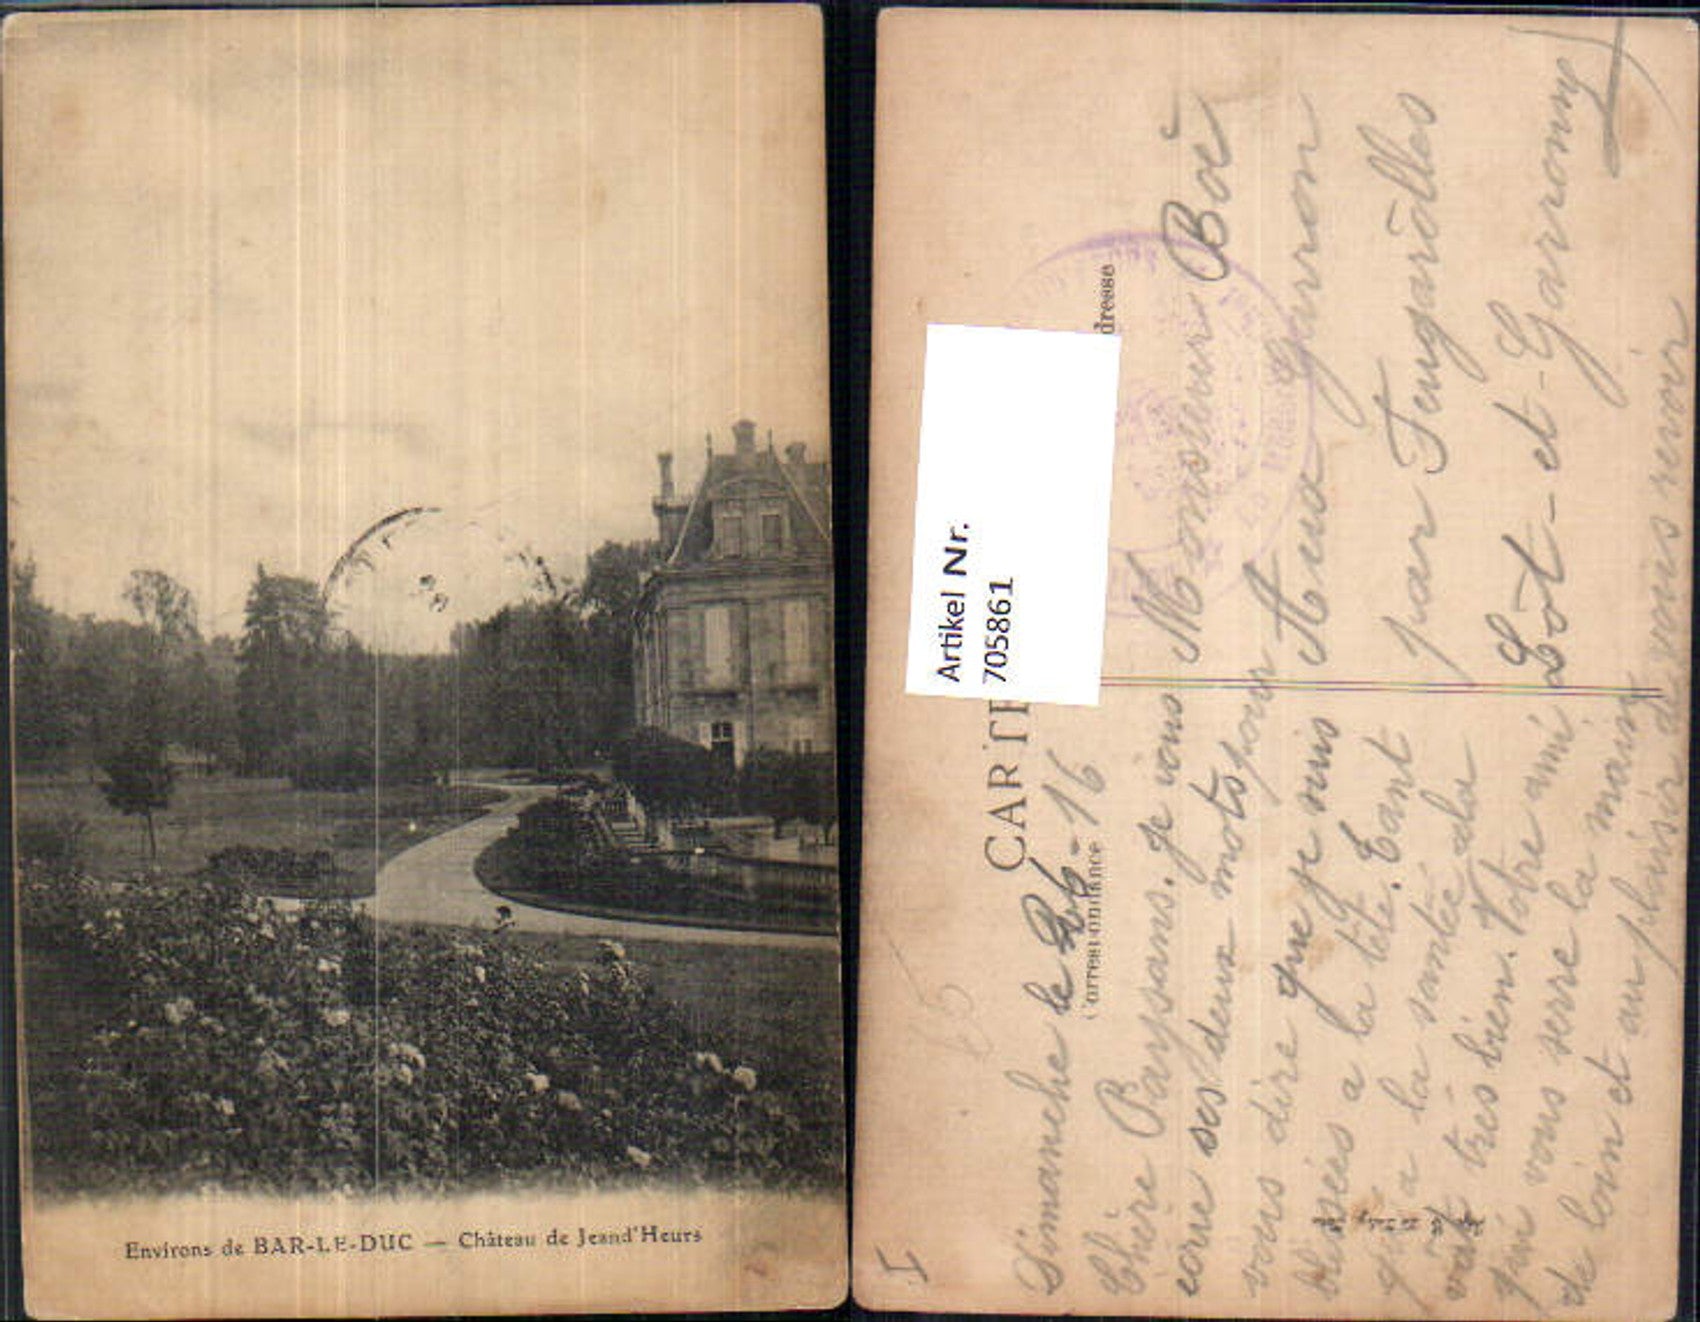 Environs de BAR-LE-DUC — Château de Jeand'Heurs
Artikel Nr.
705861
CARTE
Correspondance
dresse
Dimanche le
-16
Chère Payssans. Je vous
ecrire ses deux mots pour
vous dire que je suis
blessées a la tête. Tant
qu'a la santée ela
vat très bien. Votre ami
qui vous serre la main
de loin et au plaisir de vous revoir
Monsieur Boè
Garron
par Feugarolles
Lot-et-Garronne
I